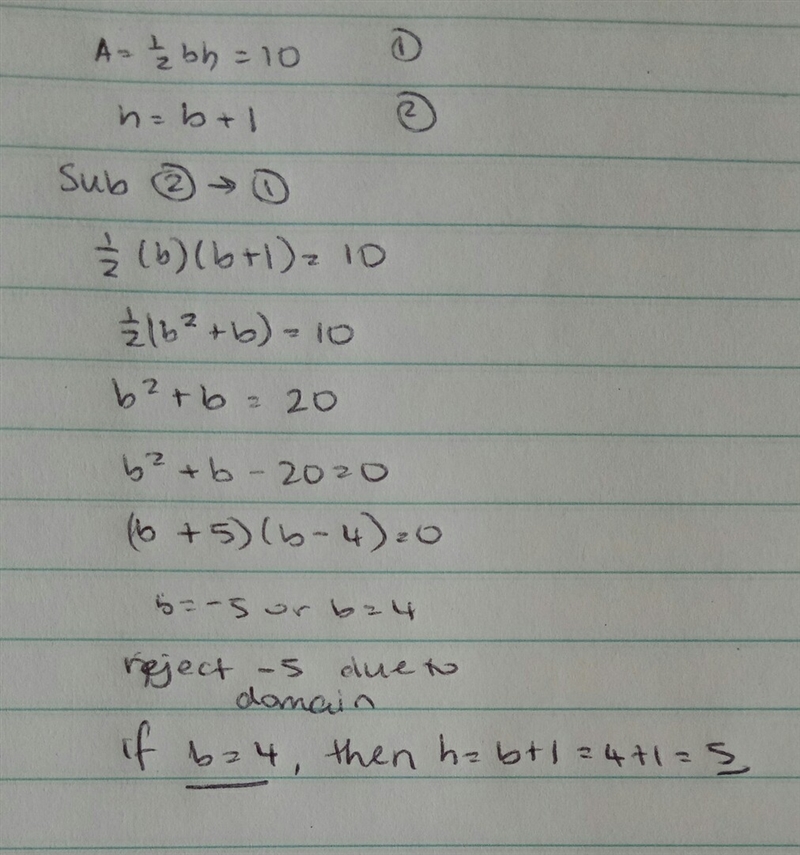 A = ½ bh = 10 ①
h = b + 1 ②
Sub ② → ①
½ (b)(b+1) = 10
½(b² + b) = 10
b² + b = 20
b² + b - 20 = 0
(b + 5)(b - 4) = 0
b = -5 or b = 4
reject -5 due to
domain
if b = 4, then h = b+1 = 4+1 = 5